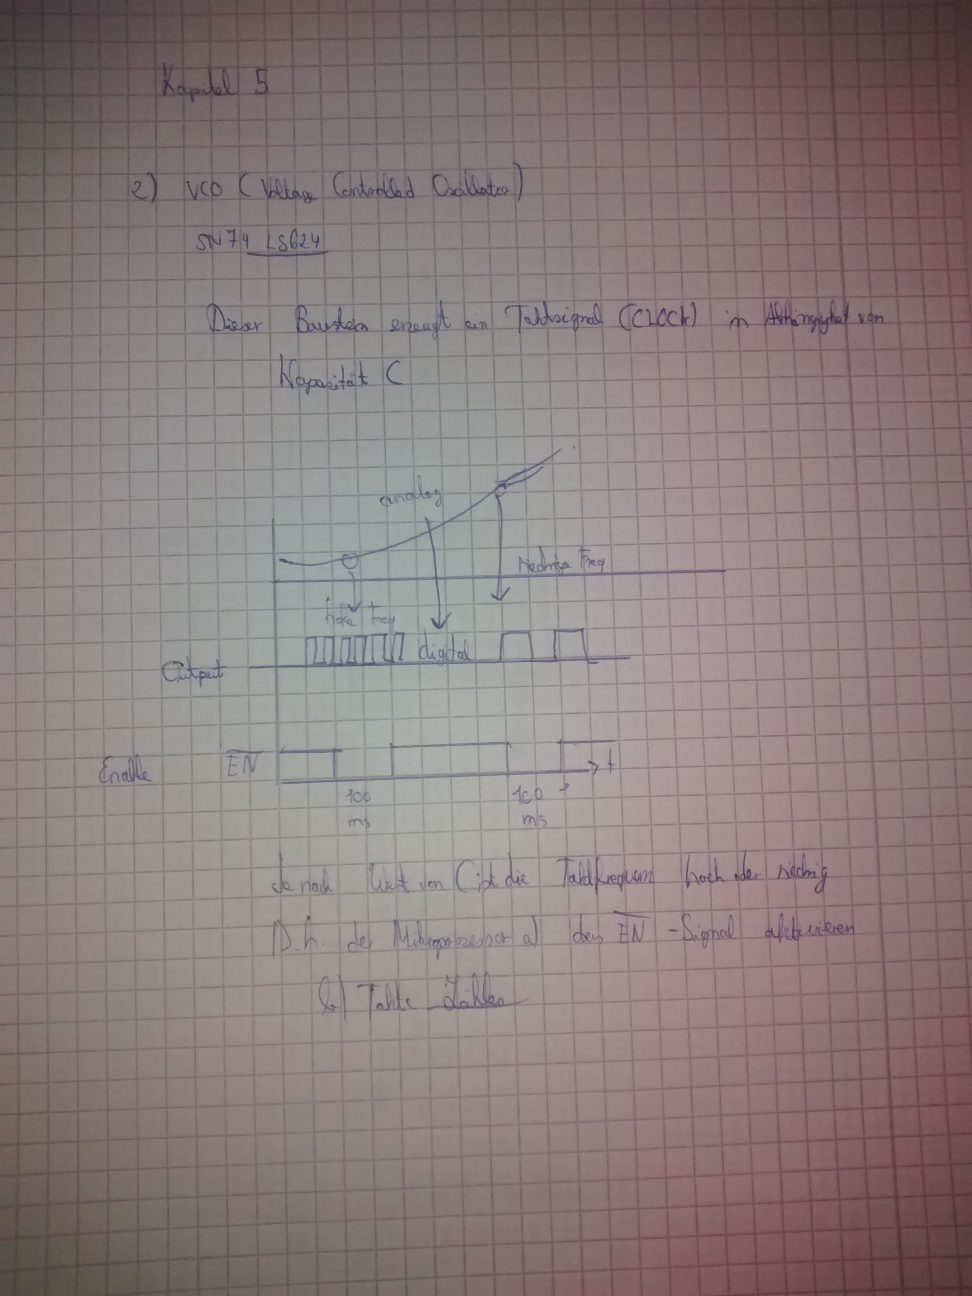 Kapitel 5
2) VCO (Voltage Controlled Oszillator)
SN74 LS624
Dieser Baustein erzeugt ein Taktsignal (CLOCK) in Abhängigkeit von
Kapazität C
analog
Niedrige Freq
Hohe Freq
digital
Output
Enable EN t
100 100
ms ms
Je nach Wert von C ist die Taktfrequenz hoch oder niedrig
D.h. der Mikroprozessor a) das EN-Signal aktivieren
b) Takte Zählen